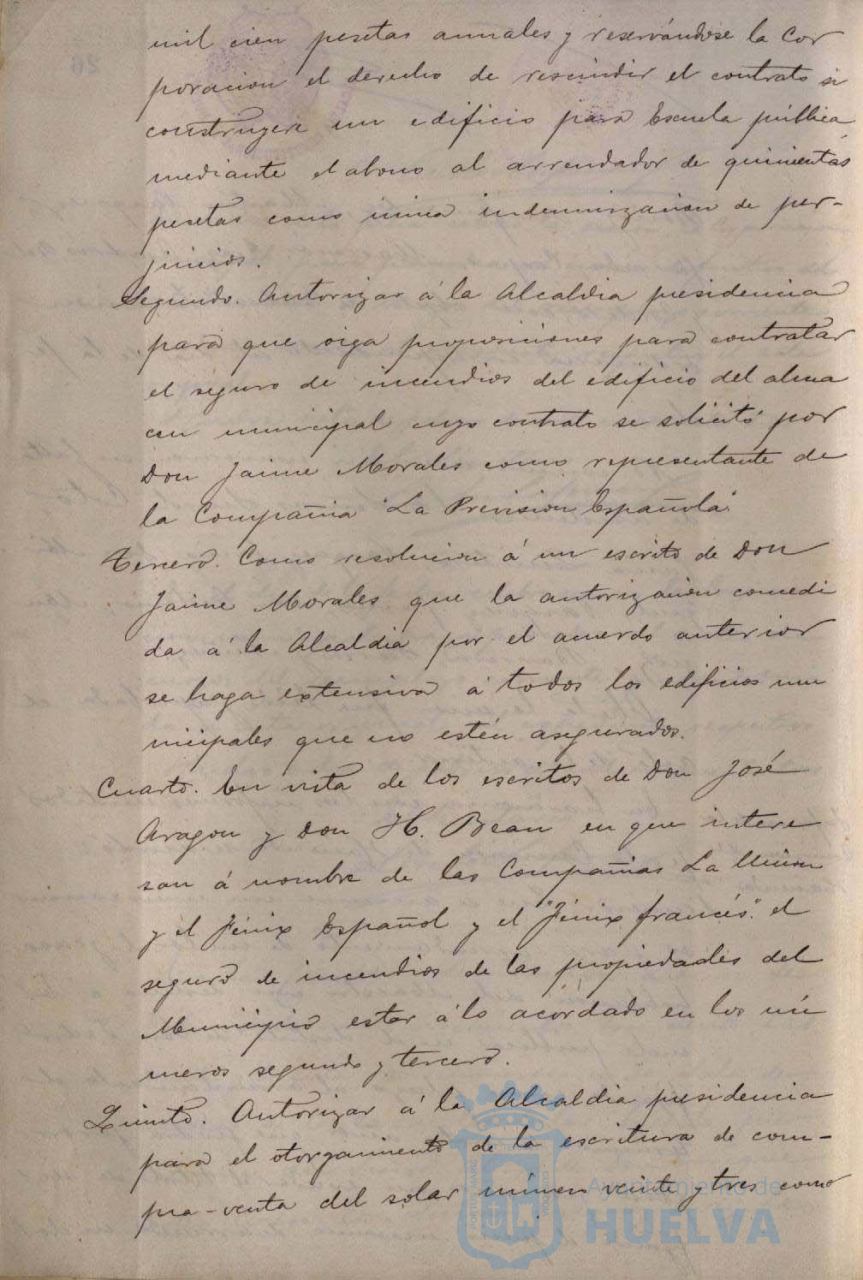 mil cien pesetas anuales y reservándose la Cor
poracion el derecho de rescindir el contrato si
construyera un edificio para Escuela pública
mediante el abono al arrendador de quinientas
pesetas como única indemnizacion de per-
juicios.
Segundo. Autorizar á la Alcaldia presidencia
para que oiga proposiciones para contratar
el seguro de incendios del edificio del alma
cen municipal cuyo contrato se solicitó por
Don Jaime Morales como representante de
la Compañia "La Prevision Española".
Tercero. Como resolucion á un escrito de Don
Jaime Morales que la autorizacion concedi
da á la Alcaldia por el acuerdo anterior
se haga extensiva á todos los edificios mu
nicipales que no estén asegurados.
Cuarto. En vista de los escritos de Don José
Aragon y Don H. Bean en que intere
san á nombre de las Compañias La Union
y el Fénix Español y el "Fénix francés" el
seguro de incendios de las propiedades del
Municipio estar á lo acordado en los nú
meros segundo y tercero.
Quinto. Autorizar á la Alcaldia presidencia
para el otorgamiento de la escritura de com-
pra-venta del solar número veinte y tres como
Ayuntamiento de
HUELVA